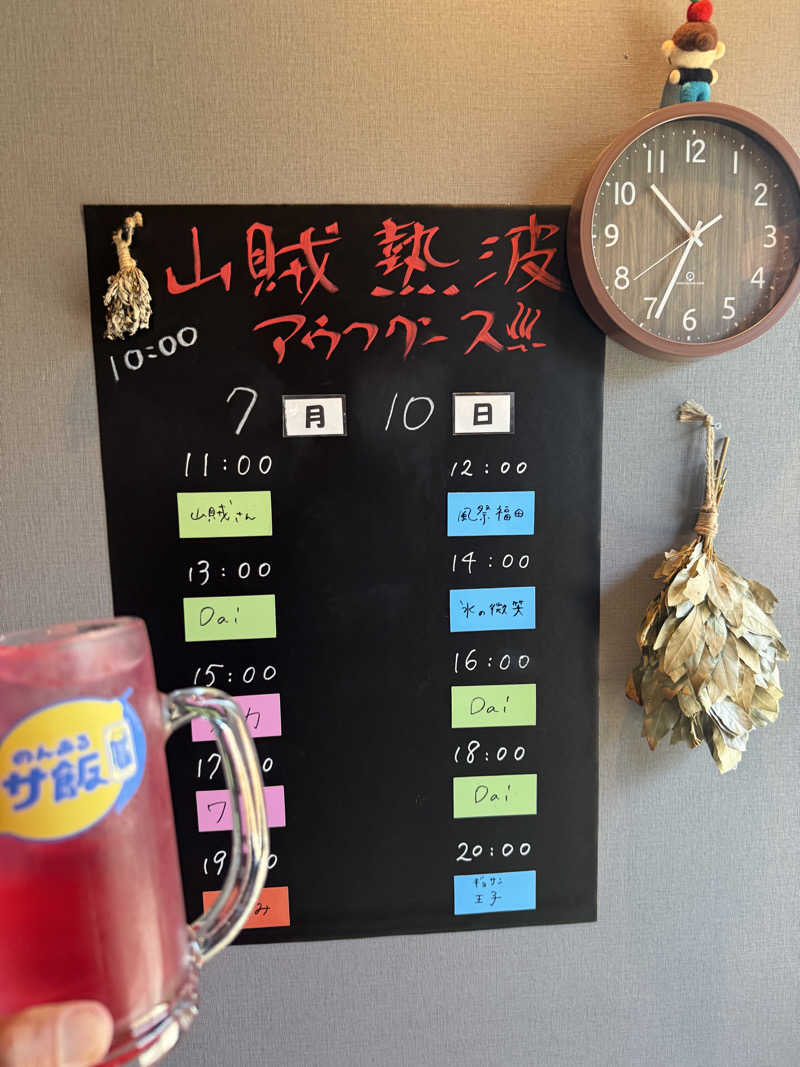 山賊 熱波
アウフグース
10:00
7 月 10 日
11:00
山賊さん
12:00
風祭福田
13:00
Dai
14:00
氷の微笑
15:00
16:00
Dai
18:00
Dai
20:00
ギョサン
王子
のんある
サ飯
12 1 2 3 4 5 6 7 8 9 10 11